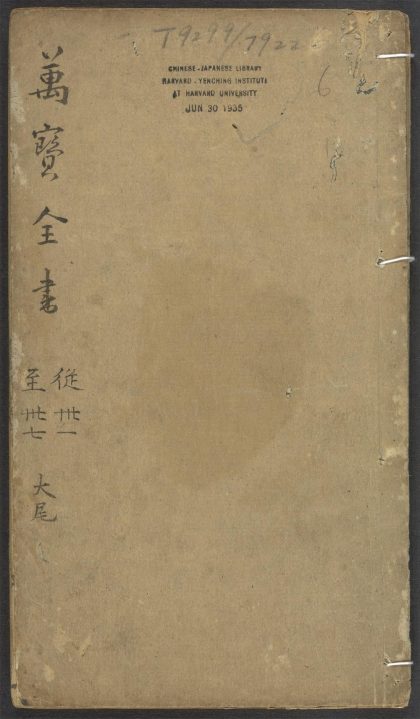 T9299/7922
CHINESE-JAPANESE LIBRARY
HARVARD-YENCHING INSTITUTE
AT HARVARD UNIVERSITY
JUN 30 1935
6
萬寳全書
從卅一
至卅七
大尾